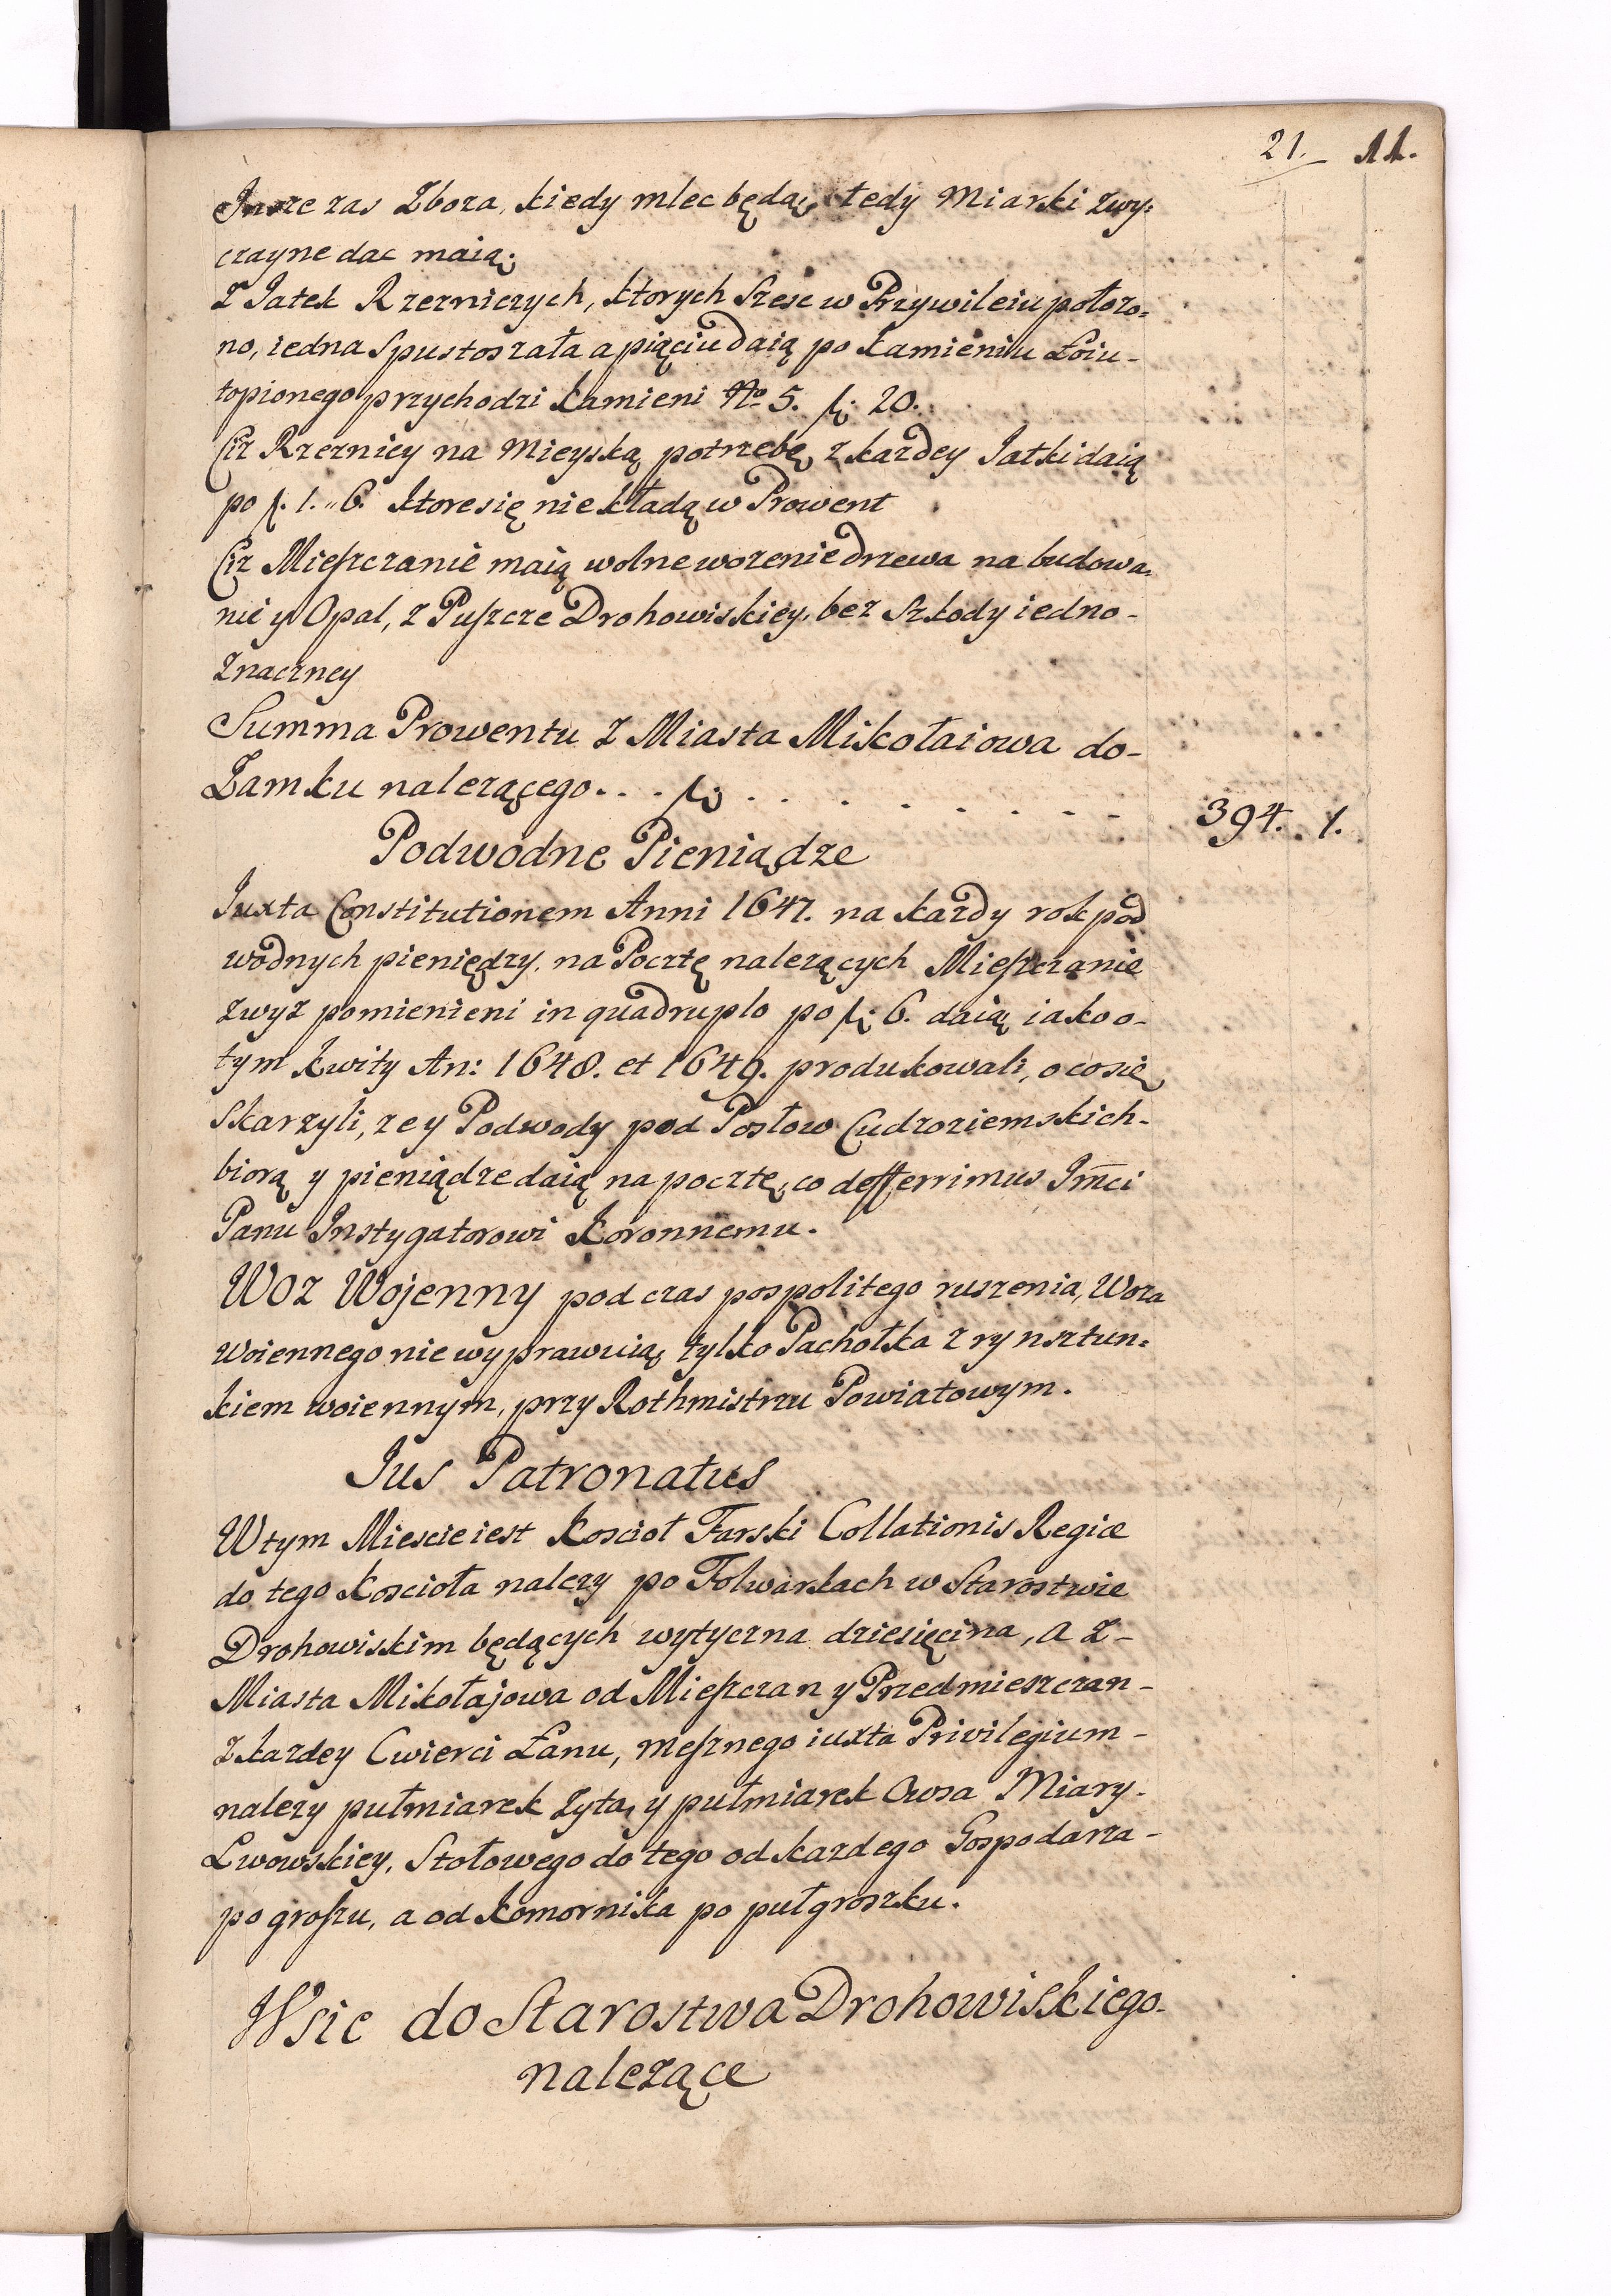 21. 11.
Insze zas Zboza, kiedy mlec będąc, tedy Miarki zwy=
czayne dac maią;
Z Jatek Rzezniczych, ktorych Szesc w Przywileiu połozo=
no, iedna Spustoszała a piąciu daią po kamieniu Łoiu-
topionego przychodzi kamieni No 5. fl: 20.
Ciz Rzeznicy na Mieyską potrzebę z kazdey Jatki daią
po f. 1.„6. ktore się nie kładą w Prowent
Ciz Mieszczanie maią wolne wozenie Drzewa na budowa=
nie y Opal, z Puszcze Drohowiskiey, bez Szkody iedno-
znaczney
Summa Prowentu z Miasta Mikołaiowa do-
Zamku nalezącego . . . fl: . . . . . . . . 394. 1.
Podwodne Pieniądze
Juxta Constitutionem Anni 1647. na kazdy rok pod
wodnych pieniędzy, na Pocztę nalezących Mieszczanie
zwyz pomienieni in quadruplo po fl: 6. daią iako o-
tym kwity An: 1648. et 1649. produkowali, o co się
Skarzyli, ze y Podwody pod Posłow Cudzoziemskich-
biorą y pieniądze daią na pocztę, co defferrimus Jmci
Panu Instygatorowi Koronnemu.
Woz Wojenny pod czas pospolitego ruszenia, Woza
Woiennego nie wyprawuią, tylko Pachołka z rynsztun=
kiem woiennym, przy Rothmistrzu Powiatowym.
Jus Patronatus
W tym Miescie iest Kosciol Farski Collationis Regiæ
do tego Koscioła nalezy po Folwarkach w Starostwie
Drohowiskim będących wytyczna dziesięcina, a z-
Miasta Mikołajowa od Mieszczan y Przedmieszczan-
z kazdey Cwierci Łanu, mesznego iuxta Privilegium-
nalezy pułmiarek zyta, y pułmiarek Owsa Miary-
Lwowskiey, Stołowego do tego od kazdego Gospodarza-
po groszu, a od komornika po pułgroszku.
Wsie do Starostwa Drohowiskiego-
nalezące